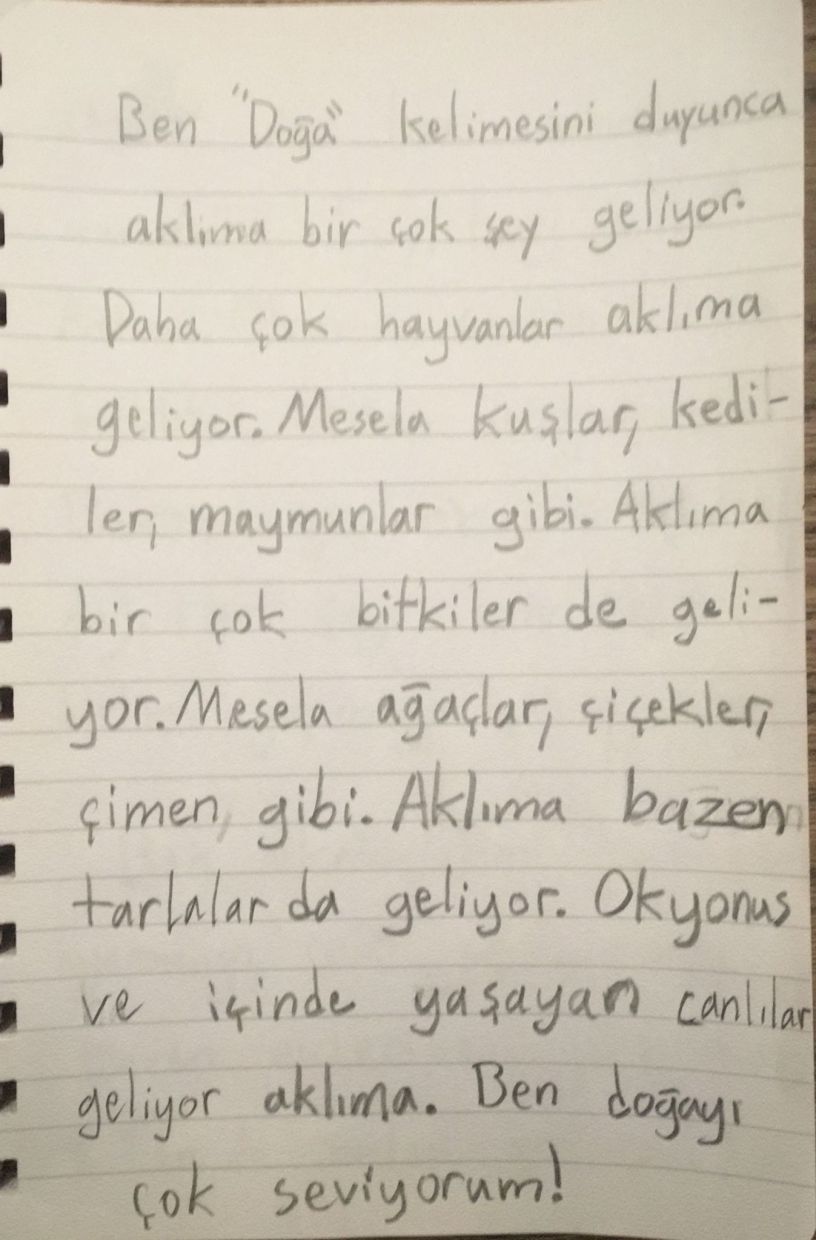 Ben "Doğa" kelimesini duyunca
aklıma bir çok şey geliyor.
Daha çok hayvanlar aklıma
geliyor. Mesela kuşlar, kedi-
ler, maymunlar gibi. Aklıma
bir çok bitkiler de geli-
yor. Mesela ağaçlar, çiçekler,
çimen, gibi. Aklıma bazen
tarlalar da geliyor. Okyonus
ve içinde yaşayan canlılar
geliyor aklıma. Ben doğayı
çok seviyorum!